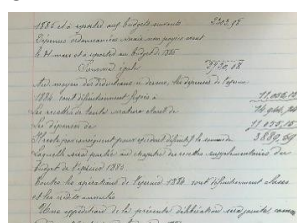 1885 et à reporter aux budgets suivants 2303,18
Dépenses ordonnancées mais non payées avant
le 31 mars et à reporter au budget de 1885
Somme égale
Au moyen des dispositions ci-dessus, les dépenses de l'exercice
1884 sont définitivement fixées à
Les recettes de toute nature étant de
Les dépenses de
Il reste par conséquent pour excédent définitif la somme de 3889,69
laquelle sera portée au chapitre des recettes supplémentaires du
budget de l'exercice 1885
Toutes les opérations de l'exercice 1884 sont définitivement closes
et les crédits annulés
de la présente délibération seront jointes comme